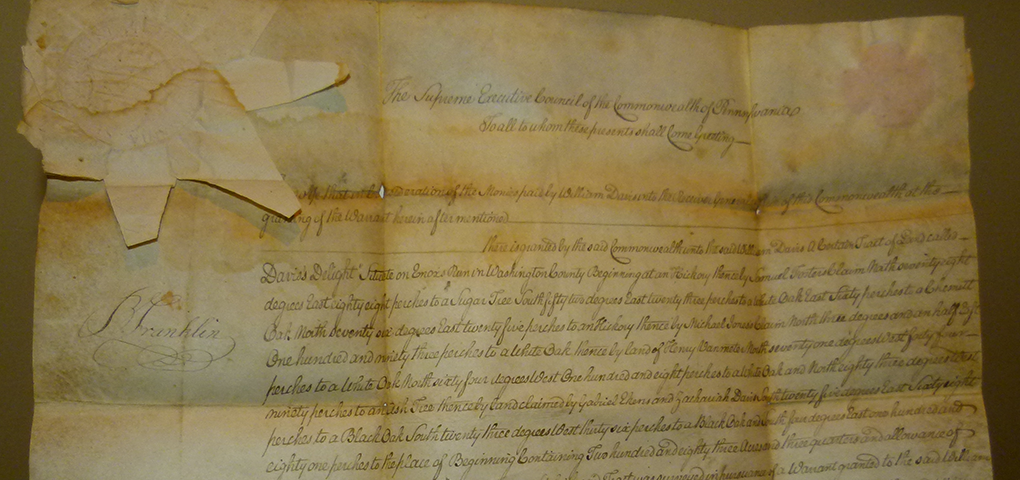 The Supreme Executive Council of the Commonwealth of Pennsylvania
To all to whom these presents shall Come Greeting
that in Consideration of the Monies paid by William Davis into the Receiver General's Office of this Commonwealth at the
granting of the Warrant herein after mentioned
there is granted by the said Commonwealth unto the said William Davis A Certain Tract of Land called
Davis's Delight Situate on Enox's Run in Washington County Beginning at an Hickory thence by Samuel Fosters Claim North seventy eight
degrees East eighty eight perches to a Sugar Tree South fifty two degrees East twenty three perches to a White Oak East Sixty perches to a Chesnutt
Oak North Seventy six degrees East twenty five perches to an Hickory thence by Michael Jones's Claim North three degrees and an half East
One hundred and ninety three perches to a White Oak thence by land of Henry Vanmeter North seventy one degrees West forty four
perches to a White Oak North sixty four degrees West One hundred and eight perches to a White Oak and North eighty three degrees West
ninety perches to an Ash Tree thence by Land claimed by Gabriel Ekens and Zachariah Davis South twenty five degrees East Sixty eight
perches to a Black Oak South twenty three degrees West thirty six perches to a Black Oak and South four degrees East one hundred and
eighty one perches to the place of Beginning Containing Two hundred and eighty three Acres and three quarters and allowance of
Tract was surveyed in pursuance of a Warrant granted to the said William
B Franklin